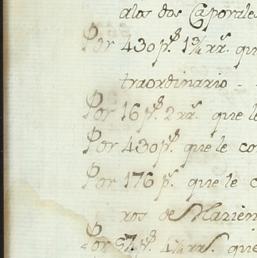 a los dos Caporales
Por 430 p.s 1¾ rr.s que
traordinario -
Por 16 p.s 2 rr.s que le
Por 430 p.s que le co
Por 176 p.s que le c
ros de Marien
Por 67 p.s rr.s que